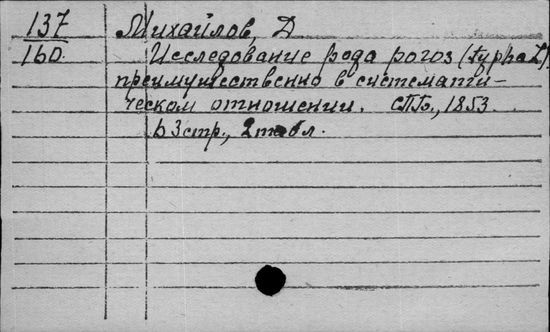 137 Михайлов, Д
160. Исследование рода рогоз (typha L)
преимущественно в система­ти-
ческом отношении. СПб., 1853.
63 стр., 2 табл.